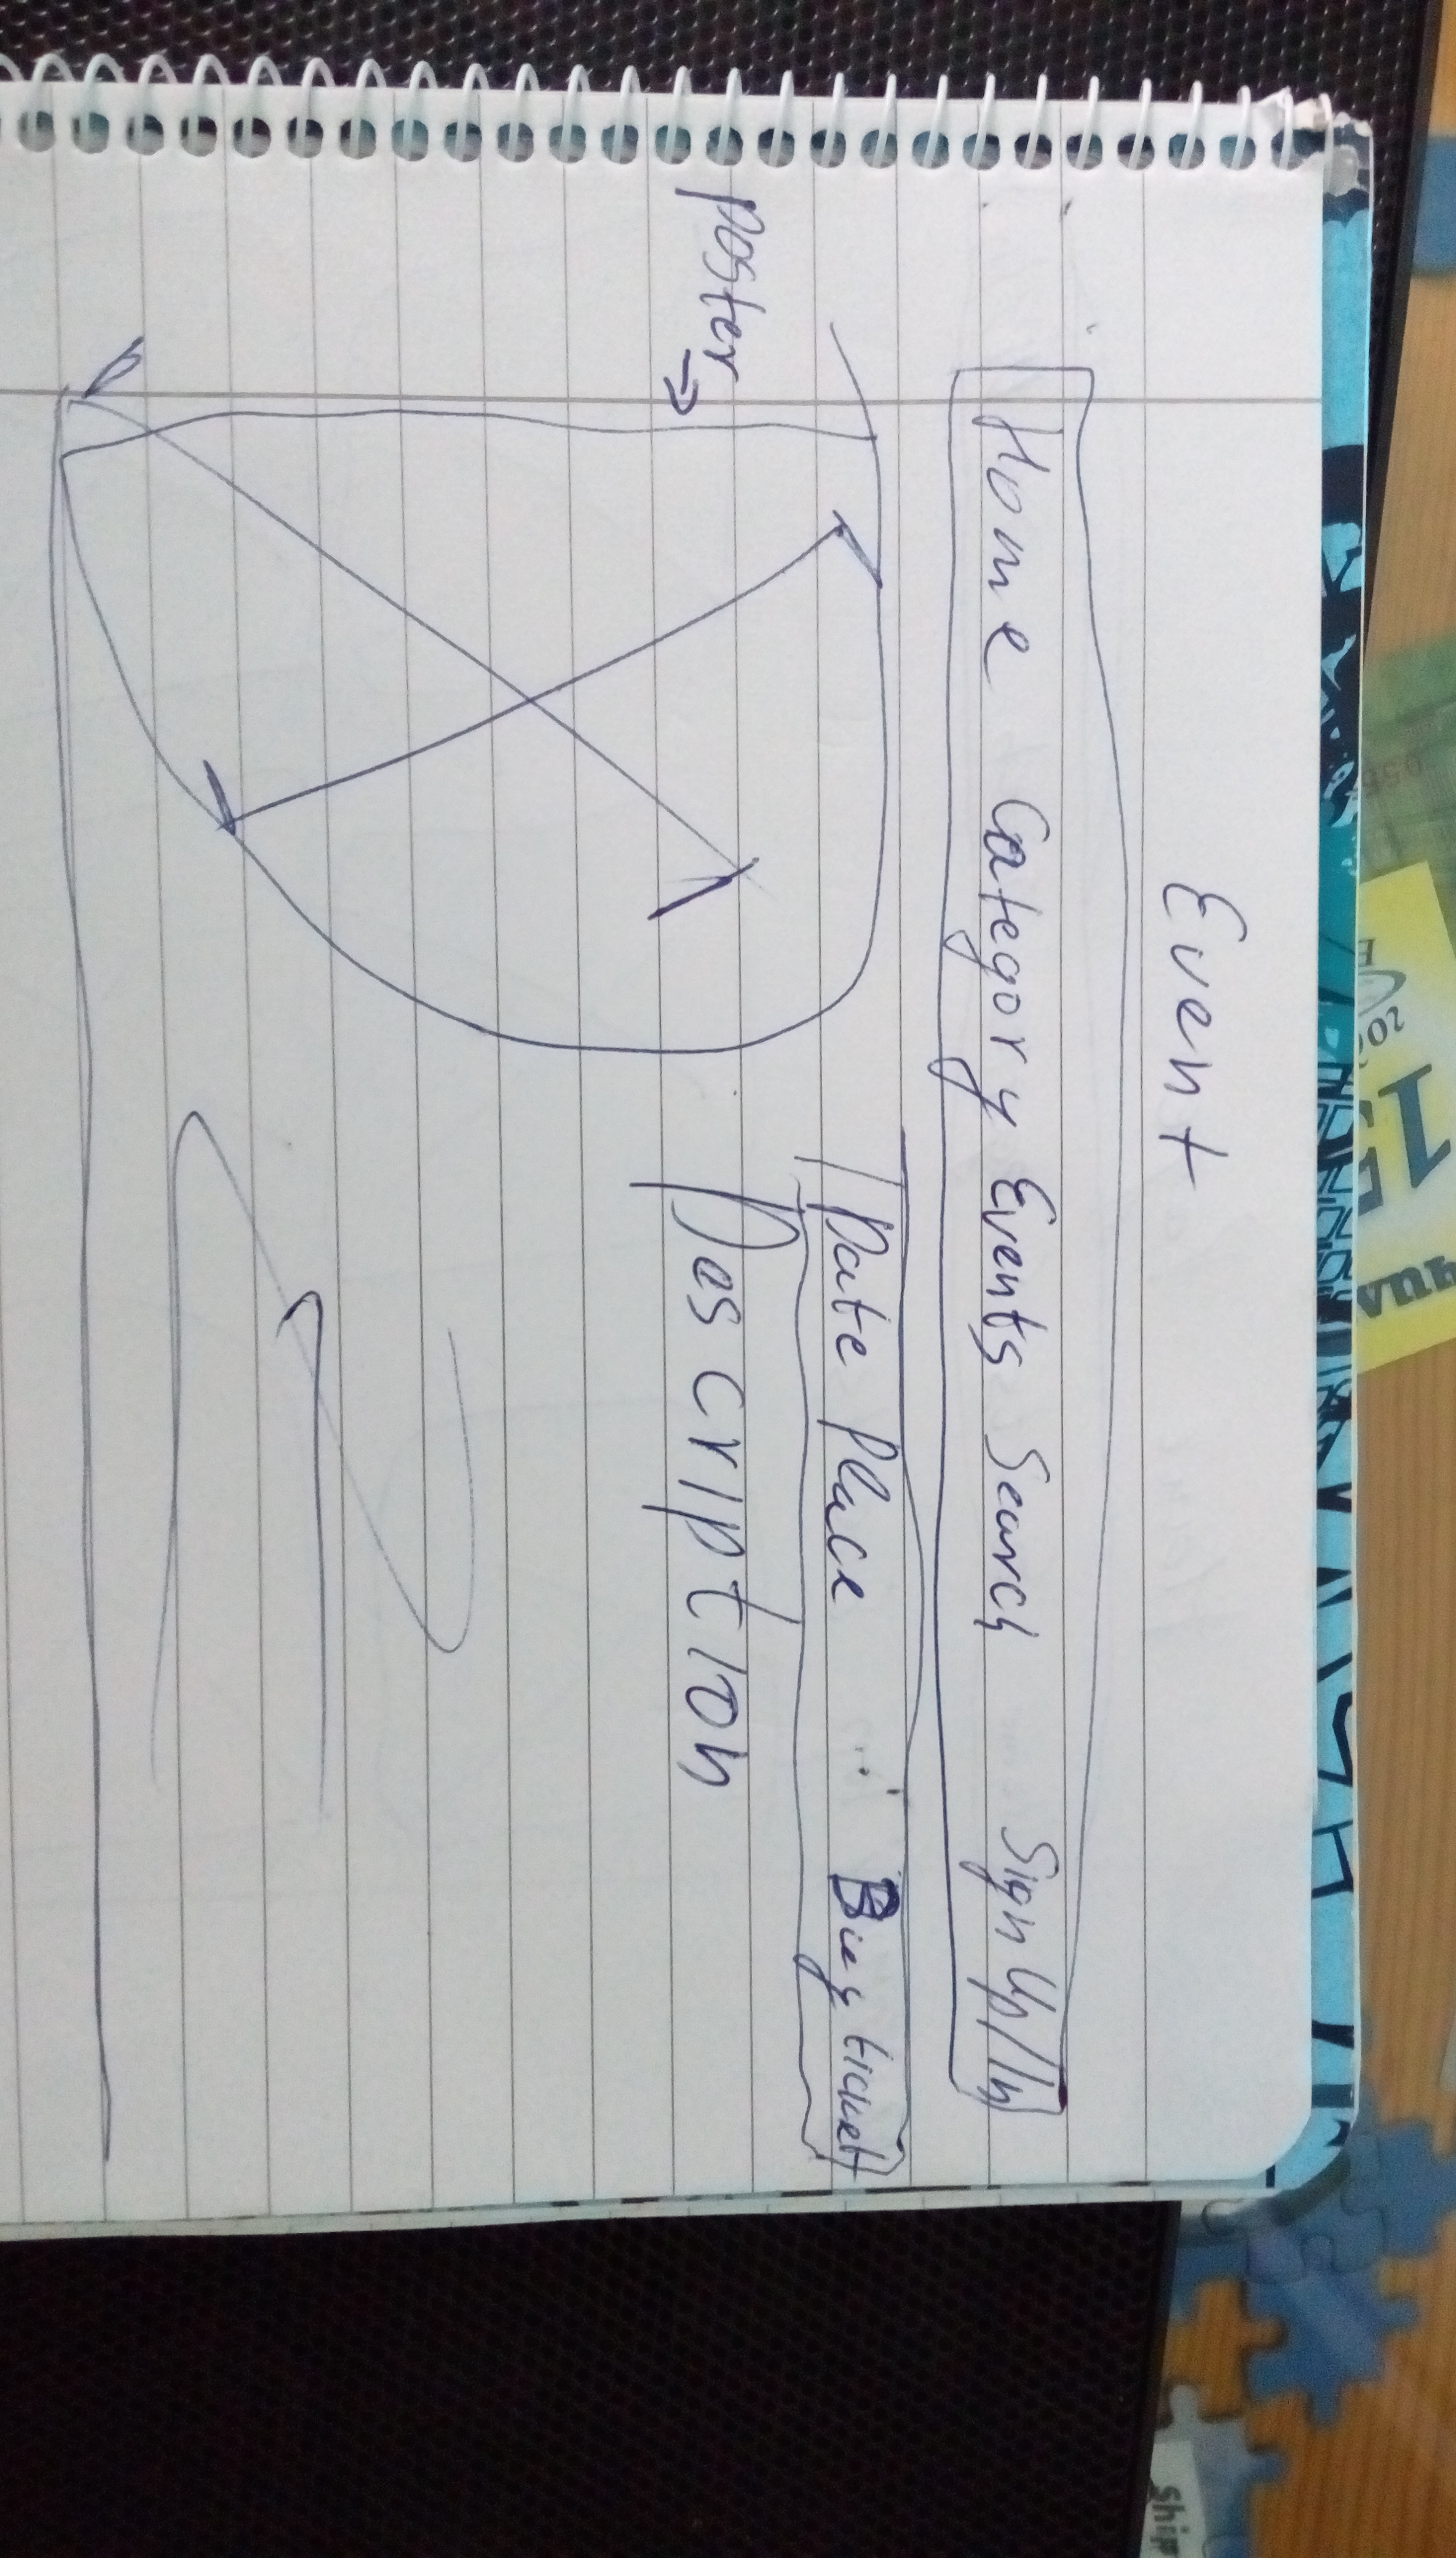 Event
Home Category Events Search Sign Up/In
Date Place Buy ticket
poster
Description
ship